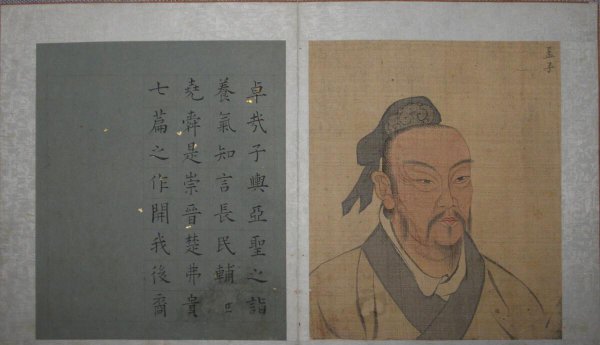 孟子
卓哉子輿亞聖之詣
養氣知言長民輔
堯舜是崇晉楚弗貴
七篇之作開我後裔